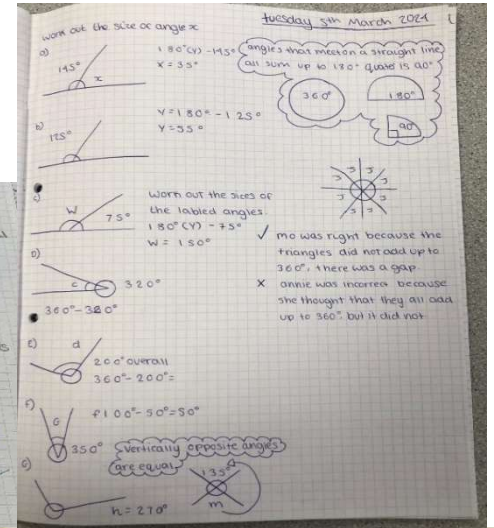 Tuesday 5th March 2024
work out the size of angle x
a)
145°
x
180°(Y) - 145°
x = 35°
angles that meet on a straight line
all sum up to 180°
360°
180°
90°
b)
125°
Y = 180° - 125°
Y = 55°
c)
W
75°
Work out the sizes of
the labled angles.
180°(Y) - 75°
W = 150°
D)
c
320°
360° - 320°
✓ mo was right because the
triangles did not add up to
360°, there was a gap.
x annie was incorrect because
she thought that they all add
up to 360° but it did not
E)
d
200° overall
360° - 200° =
F)
350°
F 100° - 50° = 50°
Vertically opposite angles
are equal
135°
m
G)
h = 270°